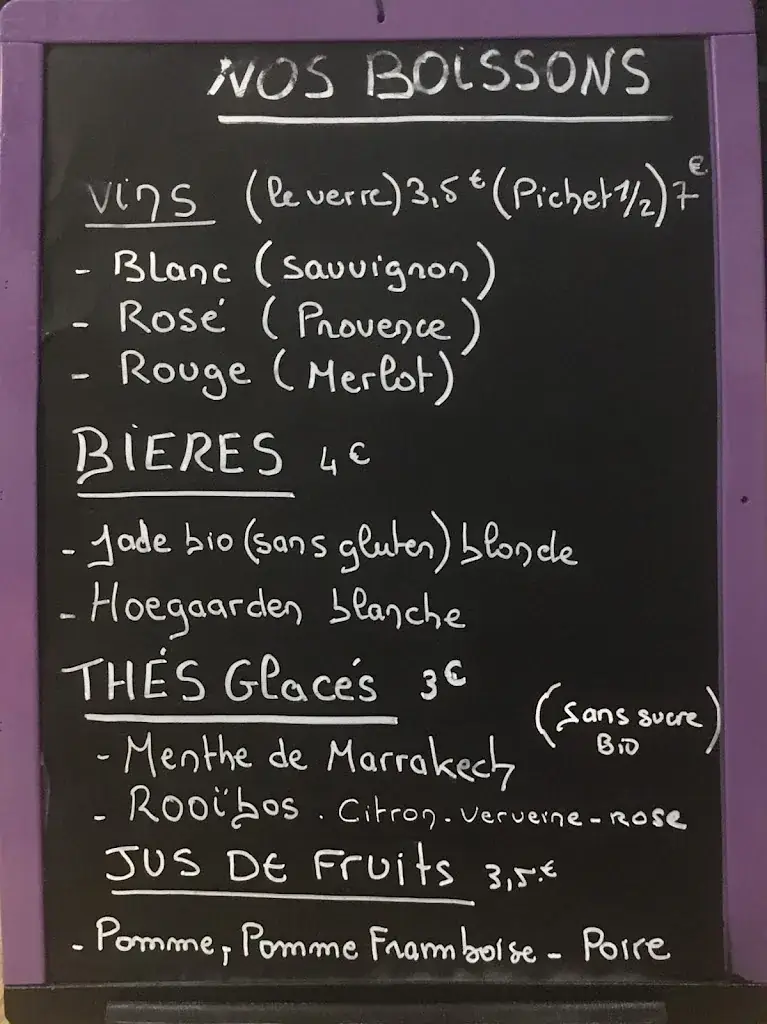 NOS BOISSONS
Vins (le verre) 3,5 € (Pichet 1/2) 7 €
- Blanc (sauvignon)
- Rosé (Provence)
- Rouge (Merlot)
BIERES 4 €
- Jade bio (sans gluten) blonde
- Hoegaarden blanche
THÉS Glacés 3 €
(Sans sucre
BIO)
- Menthe de Marrakech
- Rooïbos . Citron - Ververne - ROSE
JUS DE Fruits 3,5 €
- Pomme, Pomme Framboise - Poire